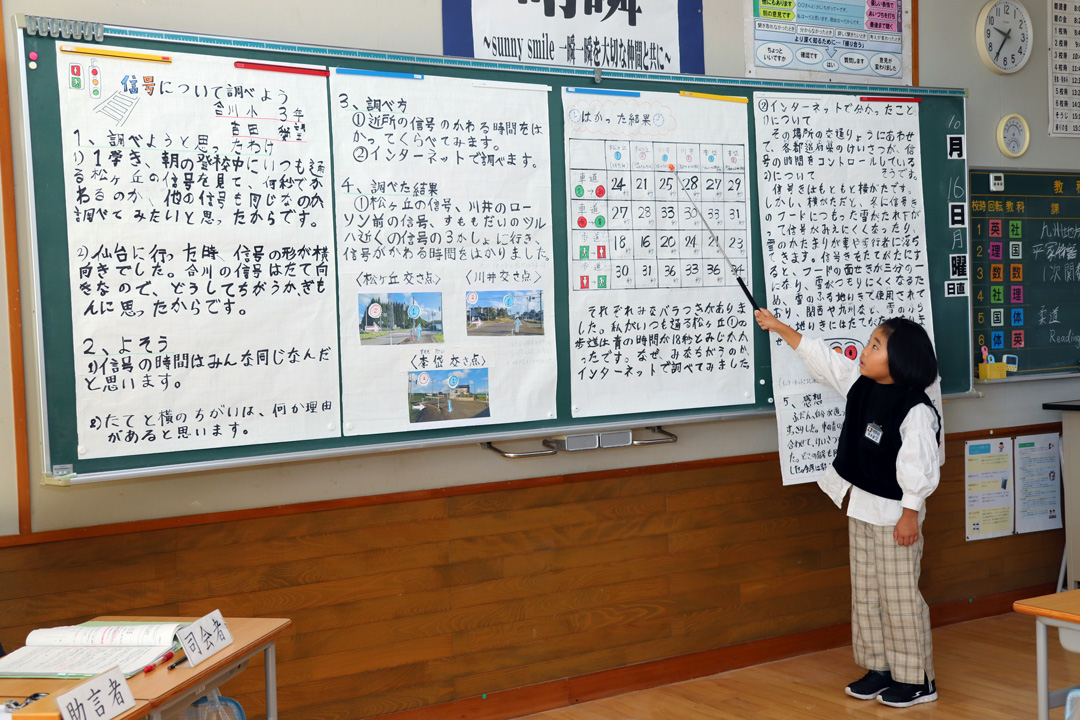 ~sunny smile 一瞬一瞬を大切な仲間と共に~
ちょっと
いいですか
確認です
はい
質問します
意見が
変わりました
信号について調べよう
合川小 3年
吉田
1、調べようと思ったわけ
1)1学き、朝の登校中にいつも通
る松ヶ丘の信号を見て、何秒でか
わるのか、他の信号も同じなのか
調べてみたいと思ったからです。
2)仙台に行った時、信号の形が横
向きでした。合川の信号はたて向
きなので、どうしてちがうかぎも
んに思ったからです。
2、よそう
1)信号の時間はみんな同じなんだ
と思います。
2)たてと横のちがいは、何か理由
があると思います。
3、調べ方
①近所の信号のかわる時間をは
かってくらべてみます。
②インターネットで調べます。
4、調べた結果
①松ヶ丘の信号、川井のロー
ソン前の信号、すももだいのツル
ハ近くの信号の3かしょに行き、
信号がかわる時間をはかりました。
〈松ヶ丘交さ点〉
〈川井交さ点〉
〈李岱交さ点〉
①はかった結果
車道 24 21 25 28 27 29
車道 27 28 33 30 33 31
歩道 18 16 20 24 21 23
歩道 30 31 36 33 36 34
それぞれみなバラつきがありま
した。私がいつも通る松ヶ丘①の
歩道は青の時間が18秒とみじかか
ったです。なぜ、みなちがうのか、
インターネットで調べてみました。
②インターネットで分かったこと
1)について
その場所の交通りょうにあわせ
て、各都道府県のけいさつが、信
号の時間をコントロールしている
そうです。
2)について
信号きはもともと横がたです。
しかし、横がただと、冬に信号き
のフードにつもった雪がたれ下が
って信号がみえにくくなったり、
雪のかたまりが車や歩行者に落ち
てきます。信号きをたてがたにす
ると、フードの面せきが三分の一
になり、雪がつもりにくくなるた
め、雪のふる地いきで使用されて
おり、関西や九州など、雪のふら
5、感想
10
月
16
日
月
曜
日直
教科
校時
回転
教科
課
1 英 社
2 理 国
3 数 数
4 社 理
5 国 体
6 体 英
九州地方
平家物語
1次関数
柔道
Reading
司会者
助言者